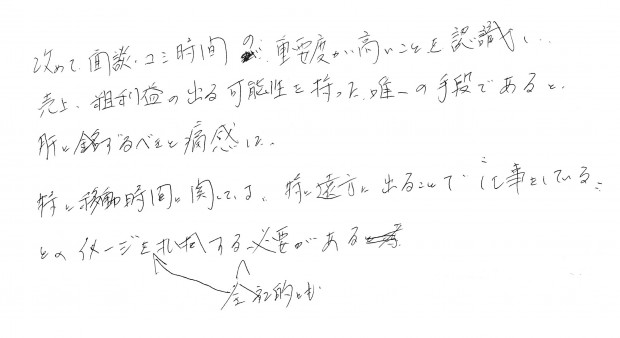 改めて、面談・コミ時間の重要度が高いことを認識し、
売上、粗利益の出る可能性を持った唯一の手段であると、
肝に銘ずるべきと痛感した。
特に移動時間に関しては、特に遠方に出ることで、仕事をしている、
とのイメージを払拭する必要がある
全社的にも